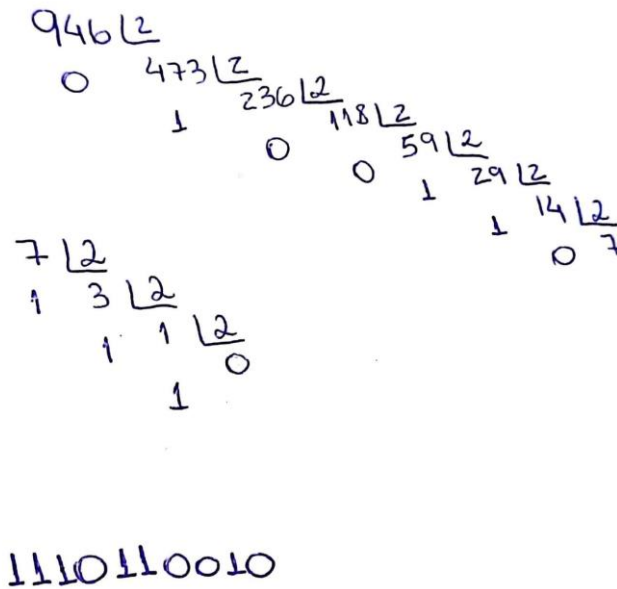 946 2
0 473 2
1 236 2
0 118 2
0 59 2
1 29 2
1 14 2
0 7
7 2
1 3 2
1 1 2
1 0
1110110010